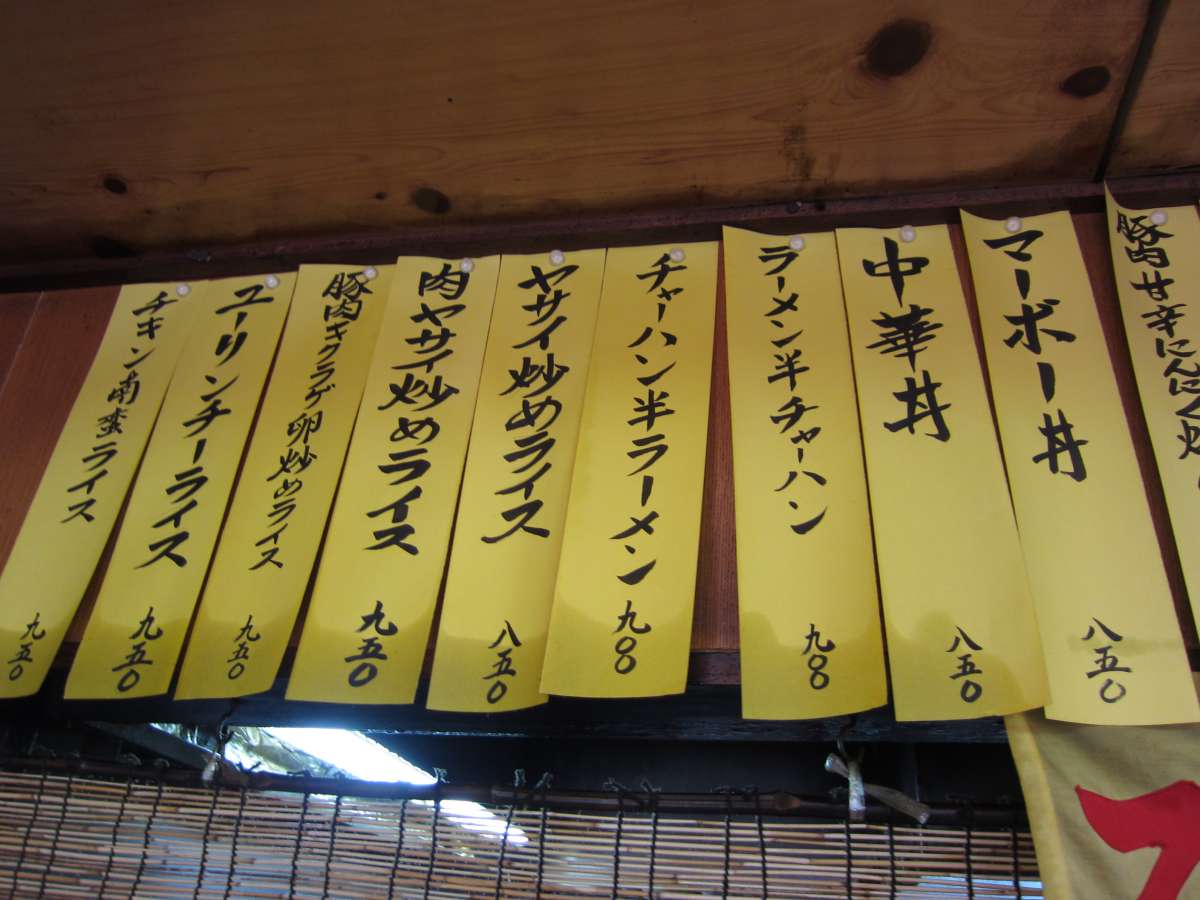 豚肉甘辛にんにく炒
マーボー丼
八五〇
中華丼
八五〇
ラーメン半チャーハン
九〇〇
チャーハン半ラーメン
九〇〇
ヤサイ炒めライス
八五〇
肉ヤサイ炒めライス
九五〇
豚肉キクラゲ卵炒めライス
九五〇
ユーリンチーライス
九五〇
チキン南蛮ライス
九五〇